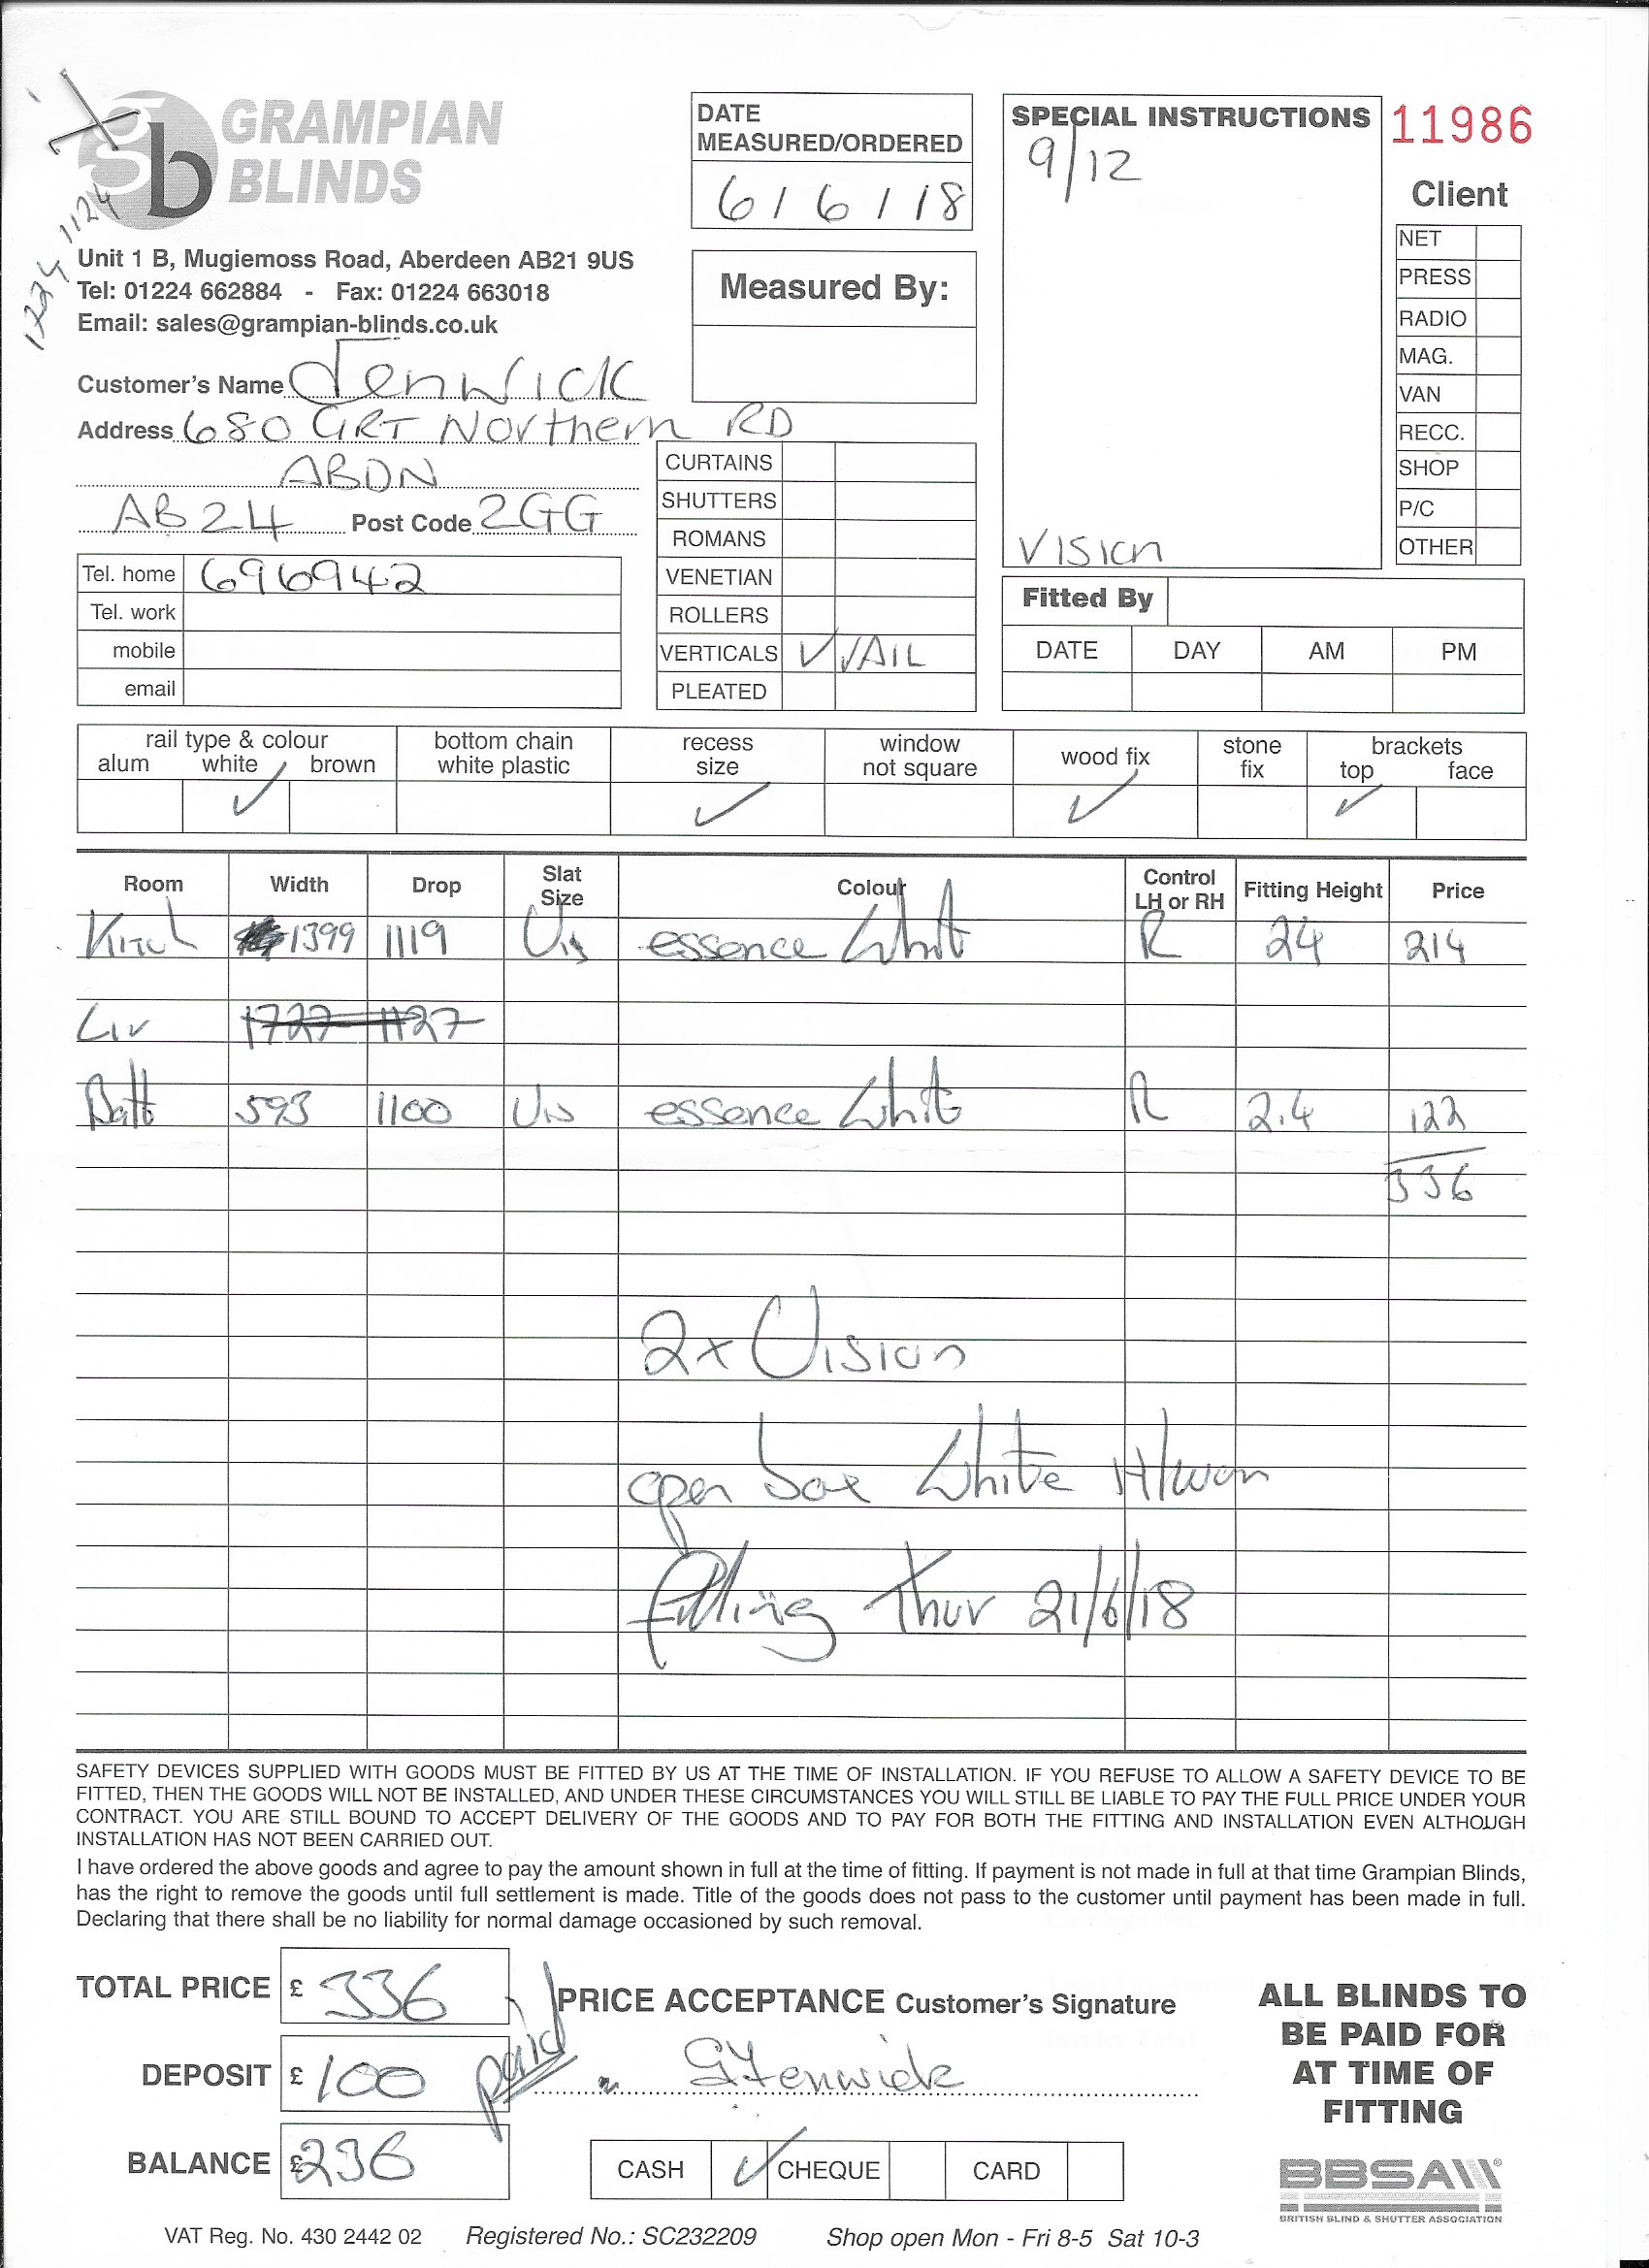 GRAMPIAN
BLINDS
gb
1224 1124
Unit 1 B, Mugiemoss Road, Aberdeen AB21 9US
Tel: 01224 662884 - Fax: 01224 663018
Email: sales@grampian-blinds.co.uk
DATE
MEASURED/ORDERED
6 / 6 / 18
Measured By:
SPECIAL INSTRUCTIONS
9/12
Vision
11986
Client
NET
PRESS
RADIO
MAG.
VAN
RECC.
SHOP
P/C
OTHER
Customer's Name Fenwick
Address 680 GRT Northern RD
ABDN
AB24 Post Code 2GG
Tel. home 696942
Tel. work
mobile
email
CURTAINS
SHUTTERS
ROMANS
VENETIAN
ROLLERS
VERTICALS ✓
PLEATED
Fitted By
DATE DAY AM PM
rail type & colour
alum white brown
✓
bottom chain
white plastic
recess
size
✓
window
not square
wood fix
✓
stone
fix
brackets
top face
✓
Room Width Drop Slat Size Colour Control LH or RH Fitting Height Price
Kitch 1399 1119 Vis essence Whit R 24 214
Liv 1727 1127
Bath 593 1100 Vis essence Whit R 2.4 122
336
2x Vision
open box White
fitting Thur 21/6/18
SAFETY DEVICES SUPPLIED WITH GOODS MUST BE FITTED BY US AT THE TIME OF INSTALLATION. IF YOU REFUSE TO ALLOW A SAFETY DEVICE TO BE
FITTED, THEN THE GOODS WILL NOT BE INSTALLED, AND UNDER THESE CIRCUMSTANCES YOU WILL STILL BE LIABLE TO PAY THE FULL PRICE UNDER YOUR
CONTRACT. YOU ARE STILL BOUND TO ACCEPT DELIVERY OF THE GOODS AND TO PAY FOR BOTH THE FITTING AND INSTALLATION EVEN ALTHOUGH
INSTALLATION HAS NOT BEEN CARRIED OUT.
I have ordered the above goods and agree to pay the amount shown in full at the time of fitting. If payment is not made in full at that time Grampian Blinds,
has the right to remove the goods until full settlement is made. Title of the goods does not pass to the customer until payment has been made in full.
Declaring that there shall be no liability for normal damage occasioned by such removal.
TOTAL PRICE £ 336
DEPOSIT £ 100 paid
BALANCE £ 236
PRICE ACCEPTANCE Customer's Signature
G Fenwick
CASH ✓ CHEQUE CARD
ALL BLINDS TO
BE PAID FOR
AT TIME OF
FITTING
BBSA
BRITISH BLIND & SHUTTER ASSOCIATION
VAT Reg. No. 430 2442 02 Registered No.: SC232209 Shop open Mon - Fri 8-5 Sat 10-3